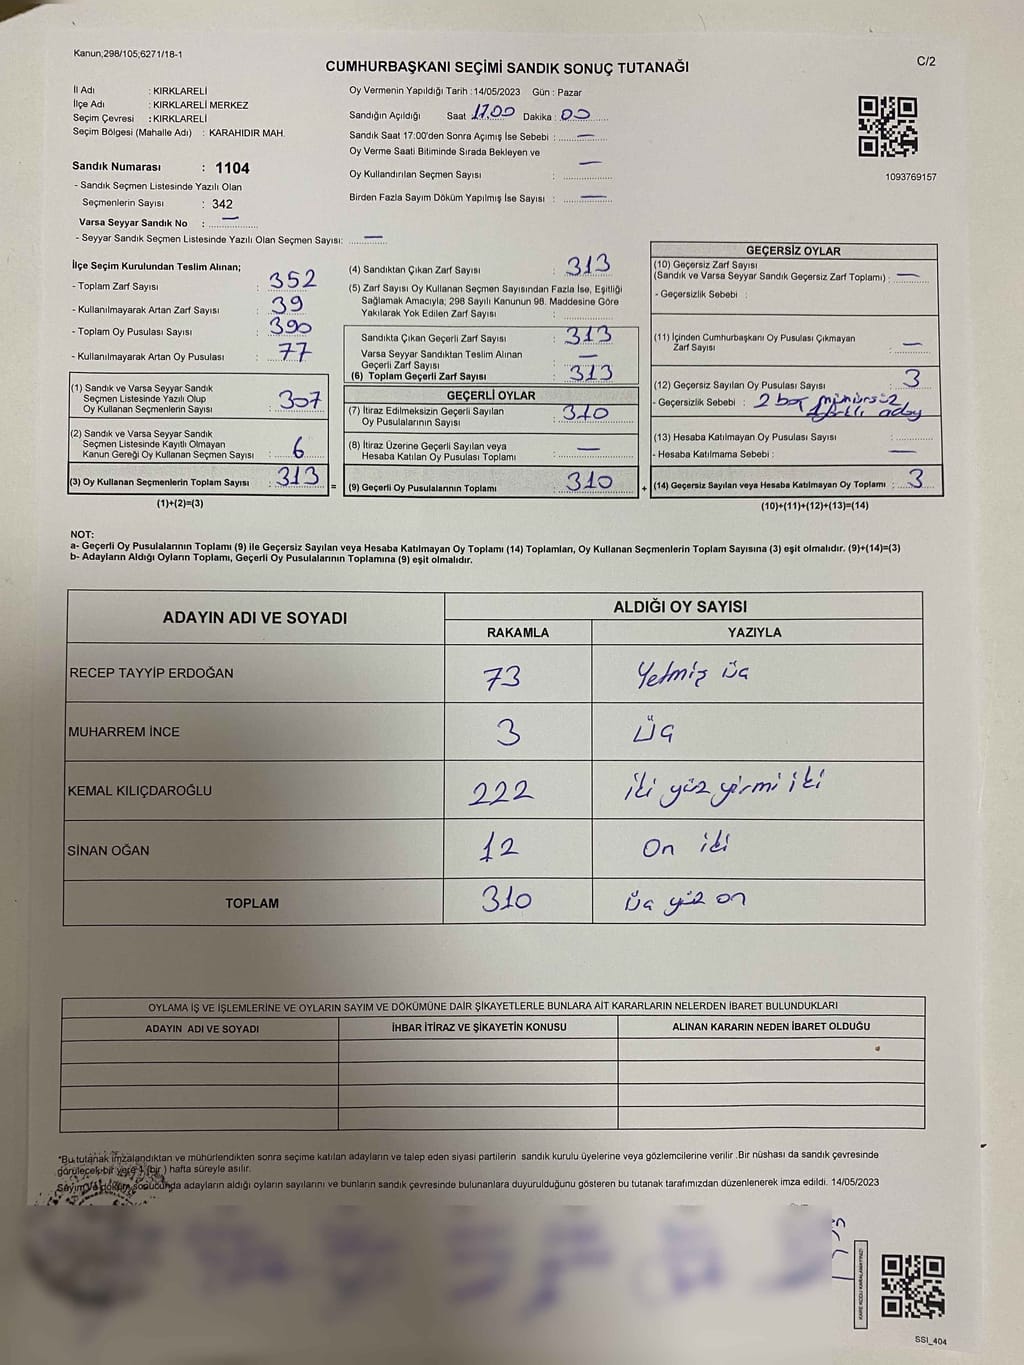 Kanun;298/105;6271/18-1
C/2
CUMHURBAŞKANI SEÇİMİ SANDIK SONUÇ TUTANAĞI
İl Adı : KIRKLARELİ
İlçe Adı : KIRKLARELİ MERKEZ
Seçim Çevresi : KIRKLARELİ
Seçim Bölgesi (Mahalle Adı) : KARAHIDIR MAH.
Sandık Numarası : 1104
- Sandık Seçmen Listesinde Yazılı Olan
Seçmenlerin Sayısı : 342
Varsa Seyyar Sandık No : —
- Seyyar Sandık Seçmen Listesinde Yazılı Olan Seçmen Sayısı: —
Oy Vermenin Yapıldığı Tarih : 14/05/2023 Gün : Pazar
Sandığın Açıldığı Saat 17.00 Dakika : 00
Sandık Saat 17:00'den Sonra Açımış İse Sebebi : —
Oy Verme Saati Bitiminde Sırada Bekleyen ve
Oy Kullandırılan Seçmen Sayısı : —
Birden Fazla Sayım Döküm Yapılmış İse Sayısı : —
1093769157
İlçe Seçim Kurulundan Teslim Alınan;
- Toplam Zarf Sayısı : 352
- Kullanılmayarak Artan Zarf Sayısı : 39
- Toplam Oy Pusulası Sayısı : 390
- Kullanılmayarak Artan Oy Pusulası : 77
(1) Sandık ve Varsa Seyyar Sandık
Seçmen Listesinde Yazılı Olup
Oy Kullanan Seçmenlerin Sayısı : 307
(2) Sandık ve Varsa Seyyar Sandık
Seçmen Listesinde Kayıtlı Olmayan
Kanun Gereği Oy Kullanan Seçmen Sayısı : 6
(3) Oy Kullanan Seçmenlerin Toplam Sayısı : 313
(1)+(2)=(3)
(4) Sandıktan Çıkan Zarf Sayısı : 313
(5) Zarf Sayısı Oy Kullanan Seçmen Sayısından Fazla İse, Eşitliği
Sağlamak Amacıyla; 298 Sayılı Kanunun 98. Maddesine Göre
Yakılarak Yok Edilen Zarf Sayısı :
Sandıkta Çıkan Geçerli Zarf Sayısı : 313
Varsa Seyyar Sandıktan Teslim Alınan
Geçerli Zarf Sayısı : —
(6) Toplam Geçerli Zarf Sayısı : 313
GEÇERLİ OYLAR
(7) İtiraz Edilmeksizin Geçerli Sayılan
Oy Pusulasının Sayısı : 310
(8) İtiraz Üzerine Geçerli Sayılan veya
Hesaba Katılan Oy Pusulası Toplamı : —
= (9) Geçerli Oy Pusulalarının Toplamı : 310 +
GEÇERSİZ OYLAR
(10) Geçersiz Zarf Sayısı
(Sandık ve Varsa Seyyar Sandık Geçersiz Zarf Toplamı) : —
- Geçersizlik Sebebi :
(11) İçinden Cumhurbaşkanı Oy Pusulası Çıkmayan
Zarf Sayısı : —
(12) Geçersiz Sayılan Oy Pusulası Sayısı : 3
- Geçersizlik Sebebi : 2 boş mühürsüz
1 farklı aday
(13) Hesaba Katılmayan Oy Pusulası Sayısı :
- Hesaba Katılmama Sebebi : —
(14) Geçersiz Sayılan veya Hesaba Katılmayan Oy Toplamı : 3
(10)+(11)+(12)+(13)=(14)
NOT:
a- Geçerli Oy Pusulalarının Toplamı (9) ile Geçersiz Sayılan veya Hesaba Katılmayan Oy Toplamı (14) Toplamları, Oy Kullanan Seçmenlerin Toplam Sayısına (3) eşit olmalıdır. (9)+(14)=(3)
b- Adayların Aldığı Oyların Toplamı, Geçerli Oy Pusulalarının Toplamına (9) eşit olmalıdır.
ADAYIN ADI VE SOYADI
ALDIĞI OY SAYISI
RAKAMLA YAZIYLA
RECEP TAYYİP ERDOĞAN 73 Yetmiş üç
MUHARREM İNCE 3 üç
KEMAL KILIÇDAROĞLU 222 iki yüz yirmi iki
SİNAN OĞAN 12 On iki
TOPLAM 310 üç yüz on
OYLAMA İŞ VE İŞLEMLERİNE VE OYLARIN SAYIM VE DÖKÜMÜNE DAİR ŞİKAYETLERLE BUNLARA AİT KARARLARIN NELERDEN İBARET BULUNDUKLARI
ADAYIN ADI VE SOYADI İHBAR İTİRAZ VE ŞİKAYETİN KONUSU ALINAN KARARIN NEDEN İBARET OLDUĞU
*Bu tutanak imzalandıktan ve mühürlendikten sonra seçime katılan adayların ve talep eden siyasi partilerin sandık kurulu üyelerine veya gözlemcilerine verilir .Bir nüshası da sandık çevresinde
görülecek bir yere 1 (bir ) hafta süreyle asılır.
Sayım ve döküm sonucunda adayların aldığı oyların sayılarını ve bunların sandık çevresinde bulunanlara duyurulduğunu gösteren bu tutanak tarafımızdan düzenlenerek imza edildi. 14/05/2023
KARE KODU KARALAMAYINIZ!
SSI_404